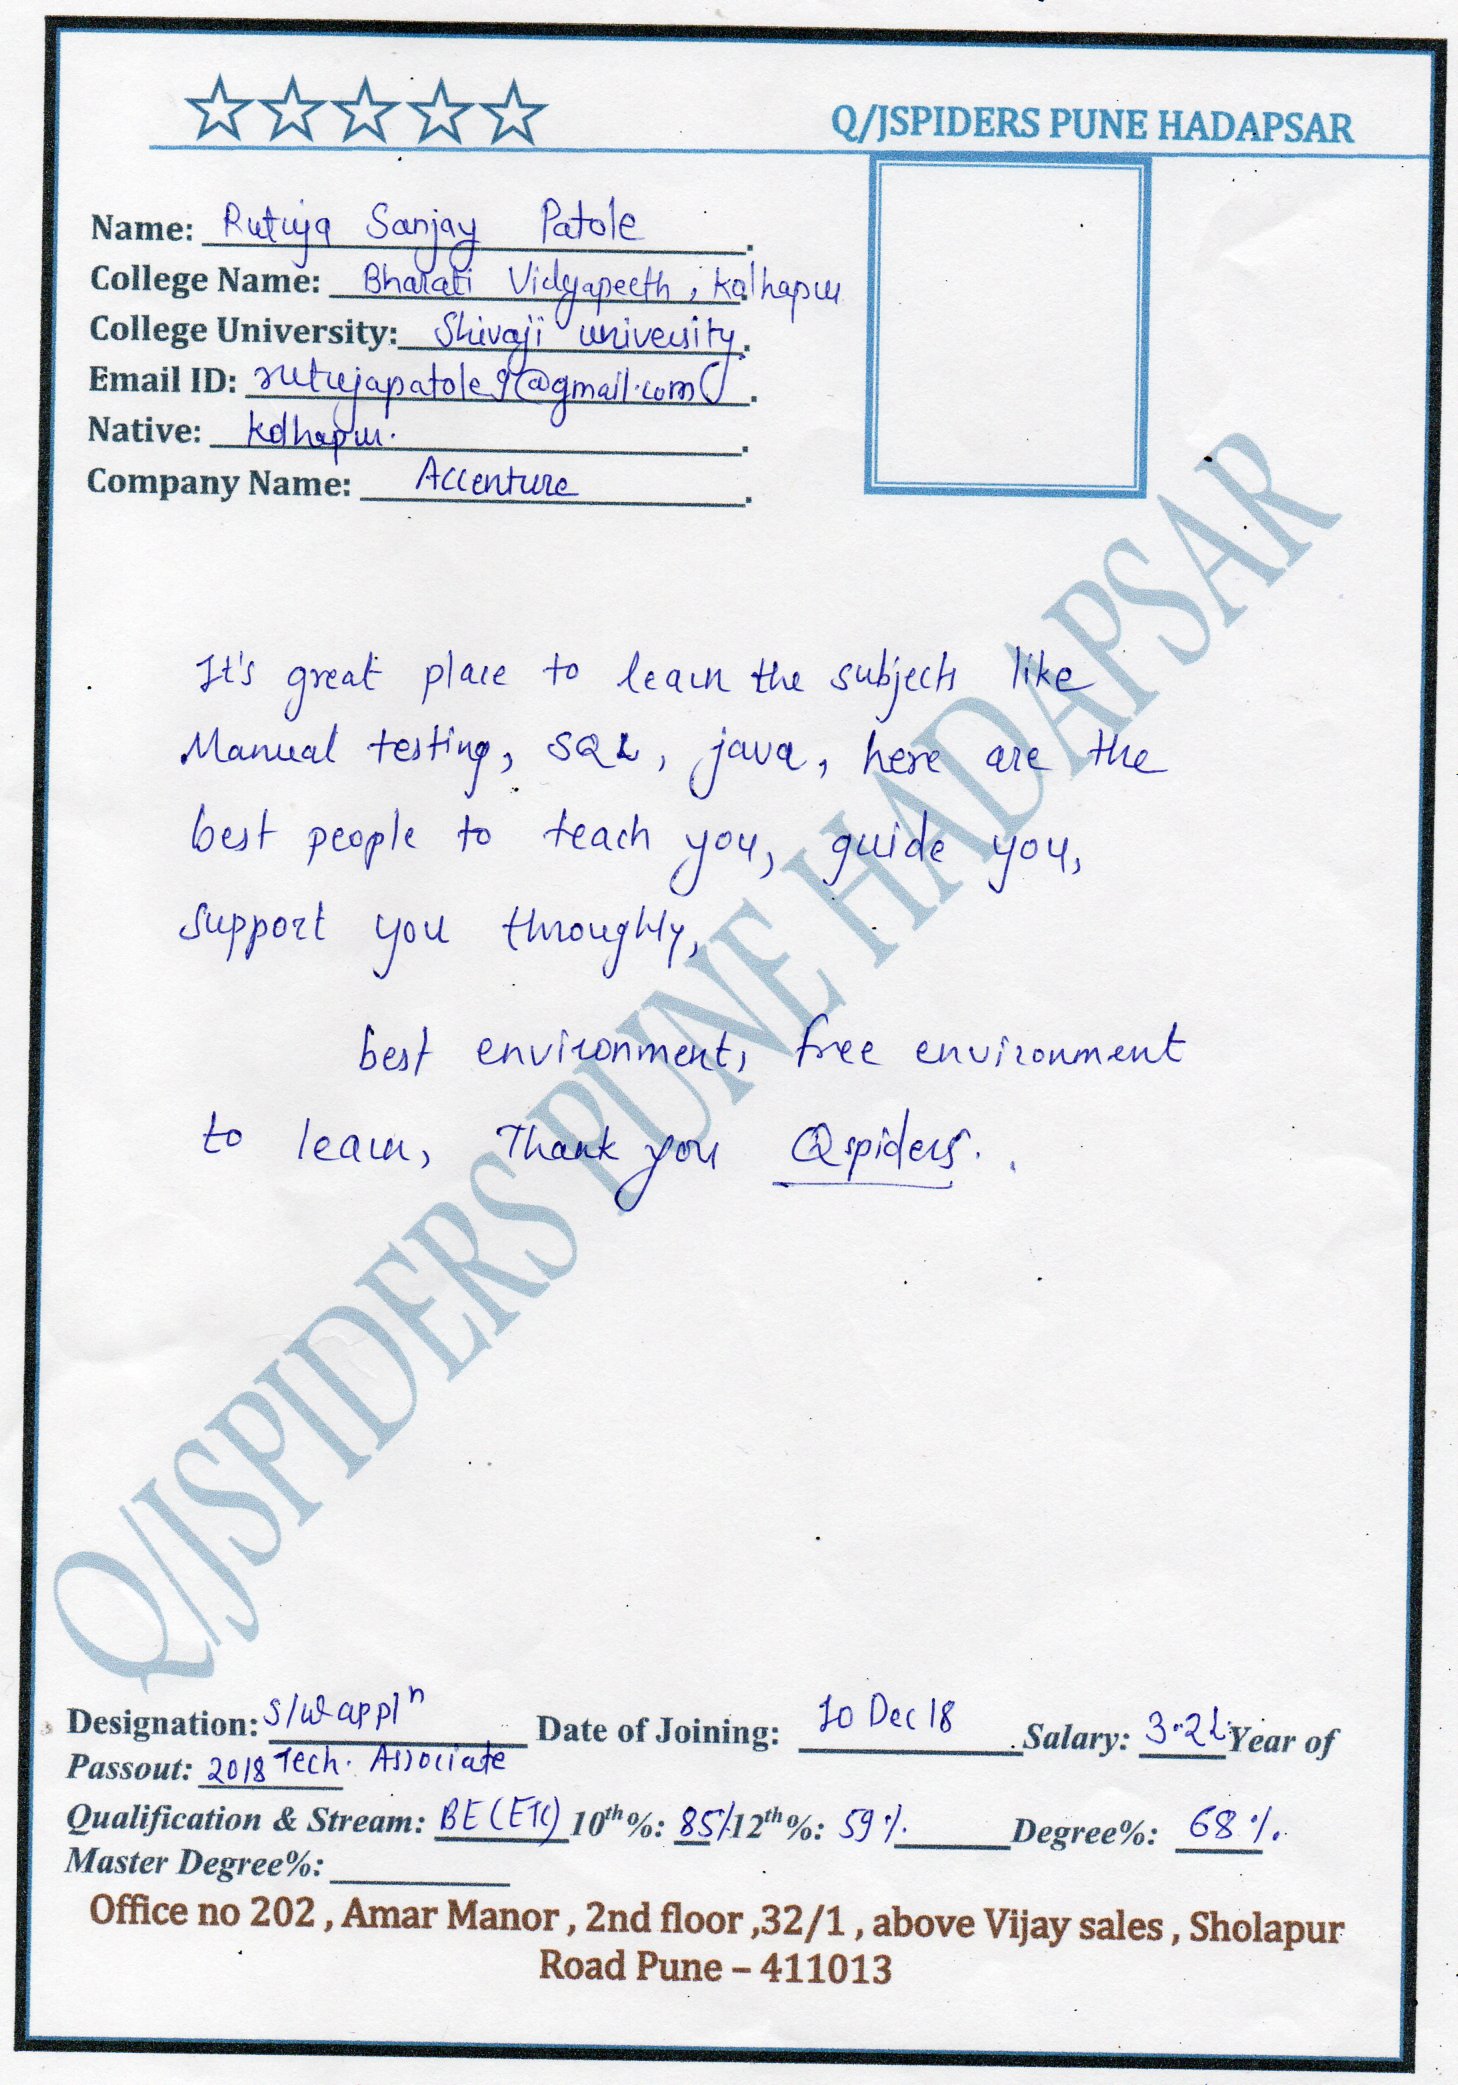 Q/JSPIDERS PUNE HADAPSAR
Name: Rutuja Sanjay Patole
College Name: Bharati Vidyapeeth, Kolhapur
College University: Shivaji university
Email ID: rutujapatole9@gmail.com
Native: Kolhapur.
Company Name: Accenture
It's great place to learn the subjects like
Manual testing, SQL, java, here are the
best people to teach you, guide you,
support you throughly,
best environment, free environment
to learn, Thank you Qspiders.
Q/JSPIDERS PUNE HADAPSAR
Designation: S/W appl^n Date of Joining: 10 Dec 18 Salary: 3.2L Year of
Passout: 2018 Tech. Associate
Qualification & Stream: BE (ETC) 10th%: 85% 12th%: 59%. Degree%: 68%.
Master Degree%:
Office no 202 , Amar Manor , 2nd floor ,32/1 , above Vijay sales , Sholapur
Road Pune – 411013